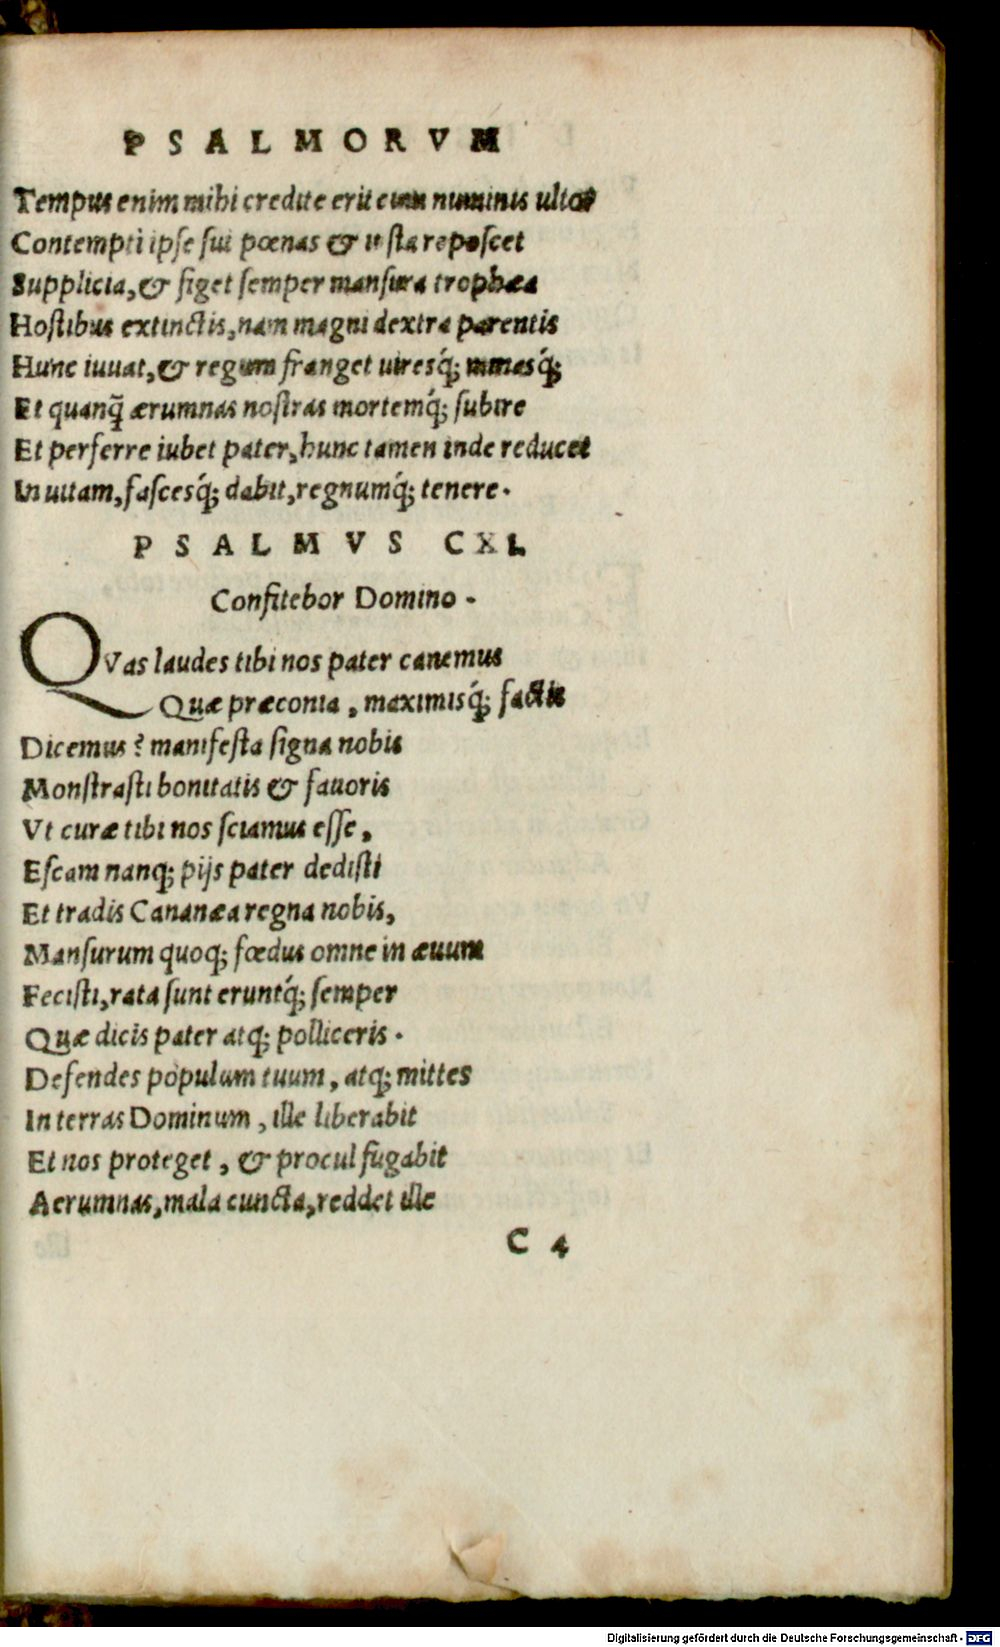 PSALMORVM
Tempus enim mihi credite erit cum numinis ultor
Contempti ipse sui pœnas & iusta reposcet
Supplicia, & figet semper mansura trophæa
Hostibus extinctis, nam magni dextra parentis
Hunc iuuat, & regum franget uiresq́; minasq́;
Et quanq̃ ærumnas nostras mortemq́; subire
Et perferre iubet pater, hunc tamen inde reducet
In uitam, fascesq́; dabit, regnumq́; tenere.
PSALMVS CXI.
Confitebor Domino.
QVas laudes tibi nos pater canemus
Quæ præconia, maximisq́; factis
Dicemus? manifesta signa nobis
Monstrasti bonitatis & fauoris
Vt curæ tibi nos sciamus esse,
Escam nanq; pijs pater dedisti
Et tradis Cananæa regna nobis,
Mansurum quoq; fœdus omne in æuum
Fecisti, rata sunt eruntq́; semper
Quæ dicis pater atq; polliceris.
Defendes populum tuum, atq; mittes
In terras Dominum, ille liberabit
Et nos proteget, & procul fugabit
Aerumnas, mala cuncta, reddet ille
C 4
Digitalisierung gefördert durch die Deutsche Forschungsgemeinschaft - DFG